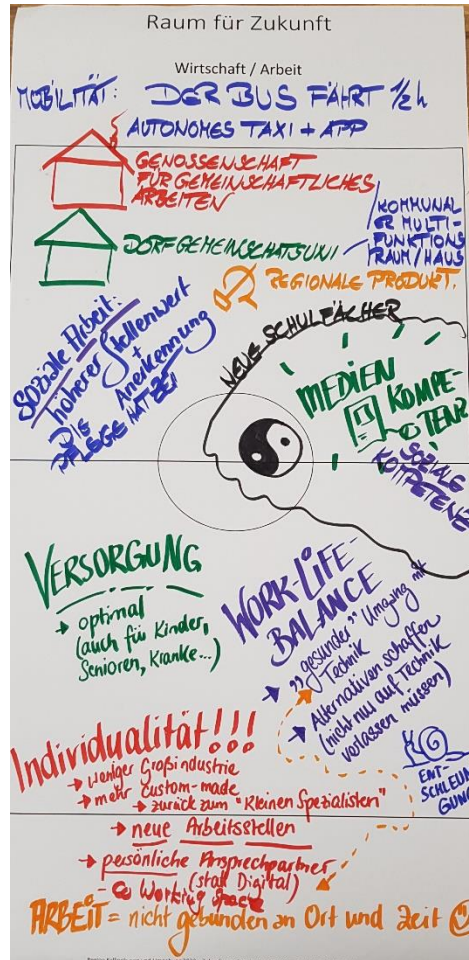 Raum für Zukunft
Wirtschaft / Arbeit
MOBILITÄT: DER BUS FÄHRT 1/2 h
AUTONOMES TAXI + APP
GENOSSENSCHAFT
FÜR GEMEINSCHAFTLICHES
ARBEITEN
DORFGEMEINSCHATSUNI
KOMMUNAL
ER MULTI-
FUNKTIONS
RAUM/HAUS
REGIONALE PRODUKT.
Soziale Arbeit:
höherer Stellenwert
+
Anerkennung
DIE
PFLEGE HAT ZEIT
NEUE SCHULFÄCHER
MEDIEN
KOMPE-
TENZ
SOZIALE
KOMPETENZ
VERSORGUNG
→ optimal
(auch für Kinder,
Senioren, Kranke...)
WORK-LIFE-
BALANCE
→ „gesunder" Umgang mit
Technik
→ Alternativen schaffen
(nicht nur auf Technik
verlassen müssen)
ENT-
SCHLEUNI
GUNG
Individualität!!!
→ weniger Großindustrie
→ mehr custom-made
→ zurück zum "Kleinen Spezialisten"
→ neue Arbeitsstellen
→ persönliche Ansprechpartner
(statt Digital)
- Co Working Space
ARBEIT = nicht gebunden an Ort und Zeit